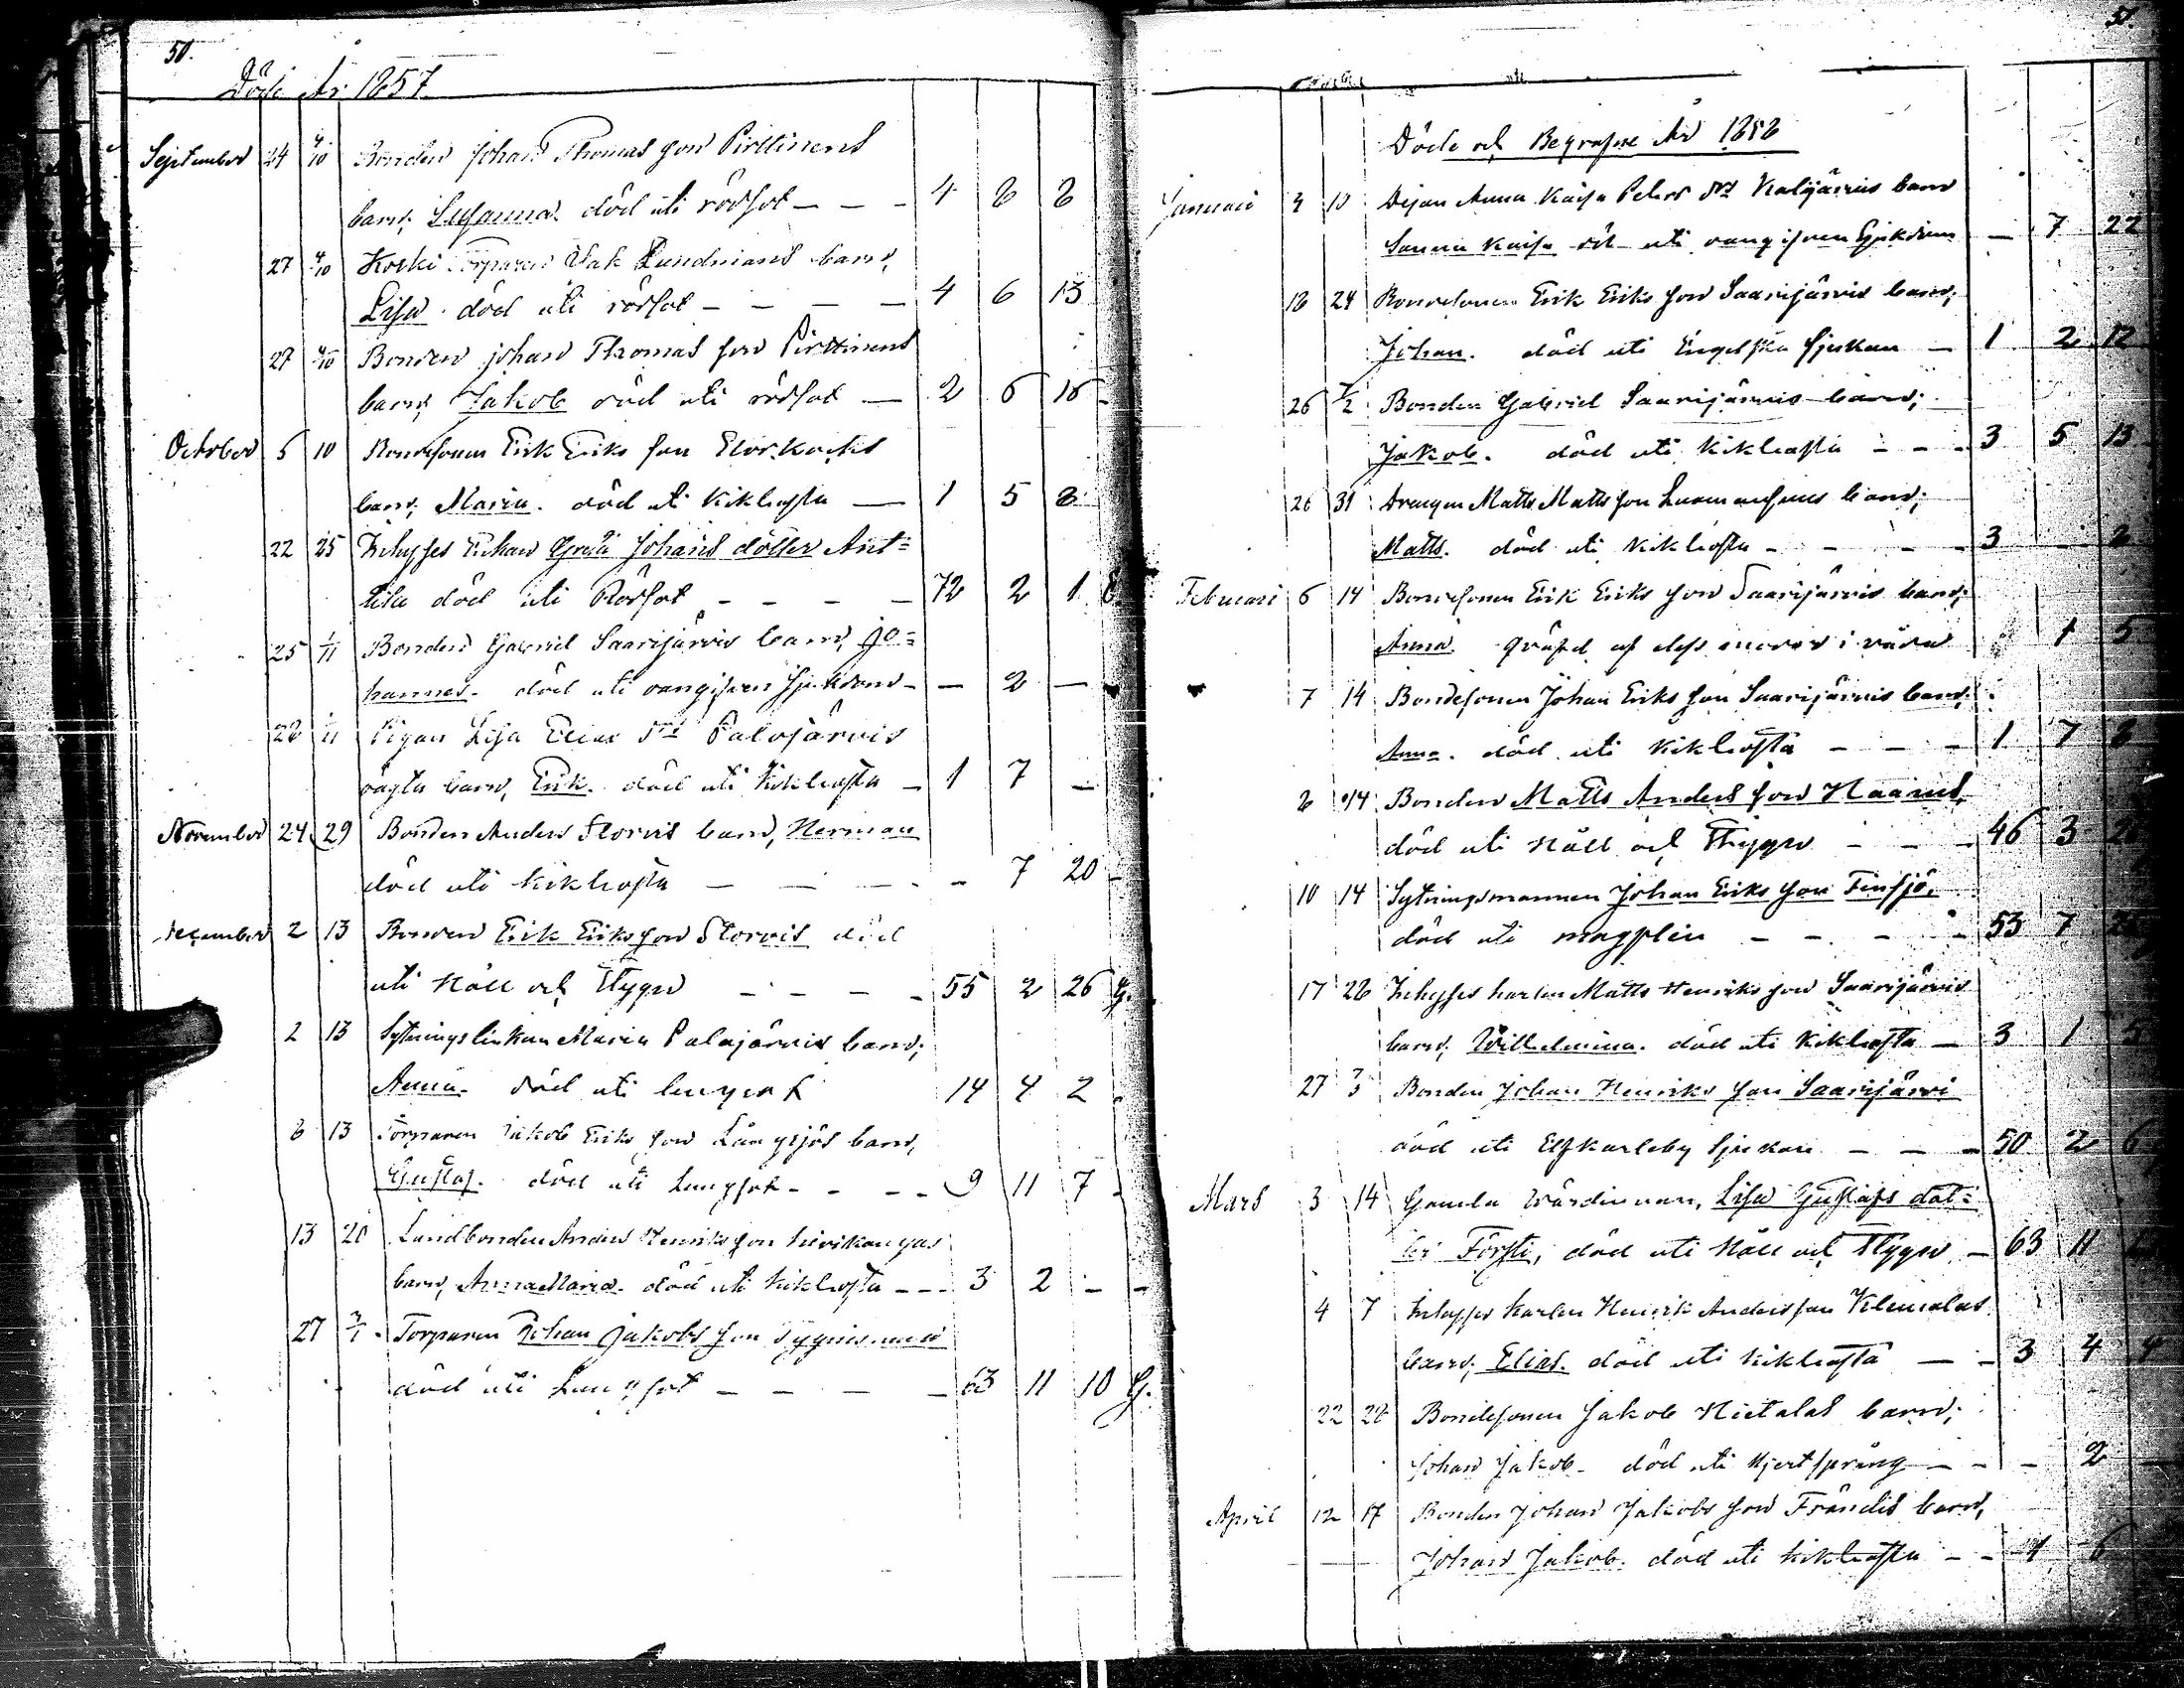 50.
Döde År 1857
September 24 4/10 Bonden Johan Thomas son Pirttinens
barn, Susanna. död uti rödsot - - - 4 8 8
27 4/10 Koski Torparen Isak Lundmans barn,
Lisa. död uti rödsot - - - - 4 6 13
27 4/10 Bonden Johan Thomas son Pirttinens
barn, Jakob död uti rödsot — 2 6 16
October 5 10 Bondesonen Erik Eriks son
barn, Maria. död uti Kikhosta — 1 5 8
22 25 Inhyses Enkan Greta Johans dotter Ant=
tila död uti Rödsot - - - - 72 2 1 E.
25 1/11 Bonden Gabriel Saarijärvis barn, Jo=
hannes. död uti okänd sjukdom - — 2 —
28 1/11 Pigan Lisa Elias dr Palojärvis
oägta barn, Erik. död uti Kikhosta - 1 7 —
November 24 29 Bonden Anders Storvis barn, Herman
död uti Kikhosta — - - - 7 20 -
December 2 13 Bonden Erik Eriks son Storvis död
uti Håll och Stygn - - - - 55 2 26 G.
2 13 Sytningsenkan Maria Palojärvis barn,
Anna. död uti lungsot 14 4 2
8 13 Torparen Jakob Eriks son Långsjös barn,
Gustaf. död uti Lungsot - - - - 9 11 7
13 20 Landbonden Anders Henriks son
barn, Anna Maria. död uti Kikhosta - - - 3 2 - -
27 3/1 Torparen Johan Jakobs son
död uti Lungsot - - - - 63 11 10 G.
51.
Döde och Begrafne År 1858
Januari 4 10 Pigan Anna Kaisa Peters dr Kalijärvis barn
Sanna Kaisa död uti okänd sjukdom — 7 22
18 24 Bondesonen Erik Eriks son Saarijärvis barn,
Johan. död uti Engelska sjukan - 1 2 12
26 7/2 Bonden Gabriel Saarijärvis barn,
Jakob. död uti Kikhosta - - - 3 5 13
26 31 Drengen Matts Matts son barn,
Matts. död uti Kikhosta - - - - 3 - 2
Februari 6 14 Bondesonen Erik Eriks son Saarijärvis barn,
Anna. qväfd af dess moder i våda 1 5
7 14 Bondesonen Johan Eriks son Saarijärvis barn,
Anna. död uti Kikhosta - - - 1 7 8
8 14 Bonden Matts Anders son Haanus,
död uti Håll och Stygn - - - 46 3
10 14 Sytningsmannen Johan Eriks son Finsjö,
död uti magplåga - - - - 53 7
17 28 Inhyses karlen Matts Henriks son Saarijärvis
barn, Wilhelmina. död uti Kikhosta — 3 1 5
27 7/3 Bonden Johan Henriks son Saarijärvi
död uti Elfkarleby sjukan - - - 50 2 6
Mars 3 14 Gamla Wärdinnan, Lisa Gustafs dot=
ter Försti, död uti Håll och Stygn - 63 11
4 7 Inhyses karlen Henrik Anders son Klemolas
barn, Elias. död uti Kikhosta — - 3 4 4
22 28 Bondesonen Jakob Hietalas barn,
Johan Jakob. död uti Hjertsprång - - - 2
April 12 17 Bonden Johan Jakobs son Frändis barn,
Johan Jakob. död uti Kikhosta - - 1 6